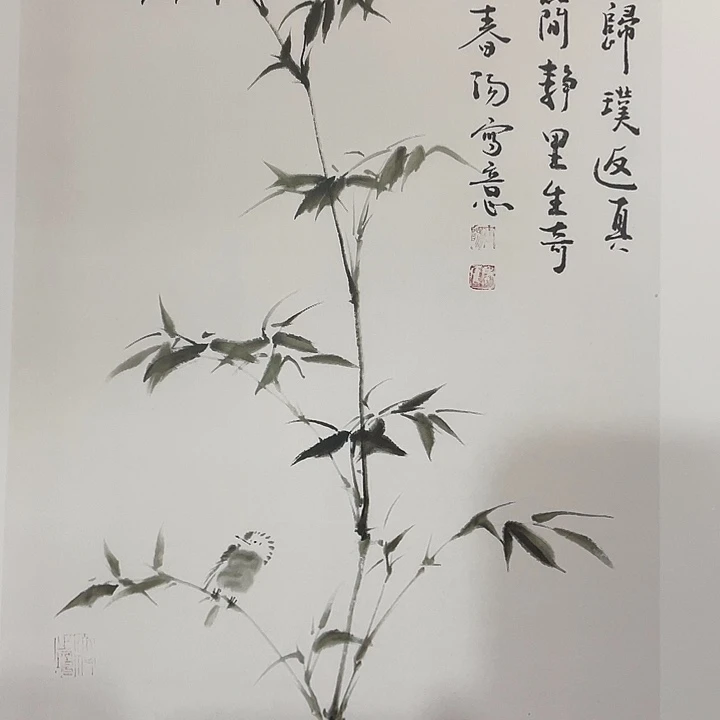 歸璞返真
簡静里生奇
春陽寫意